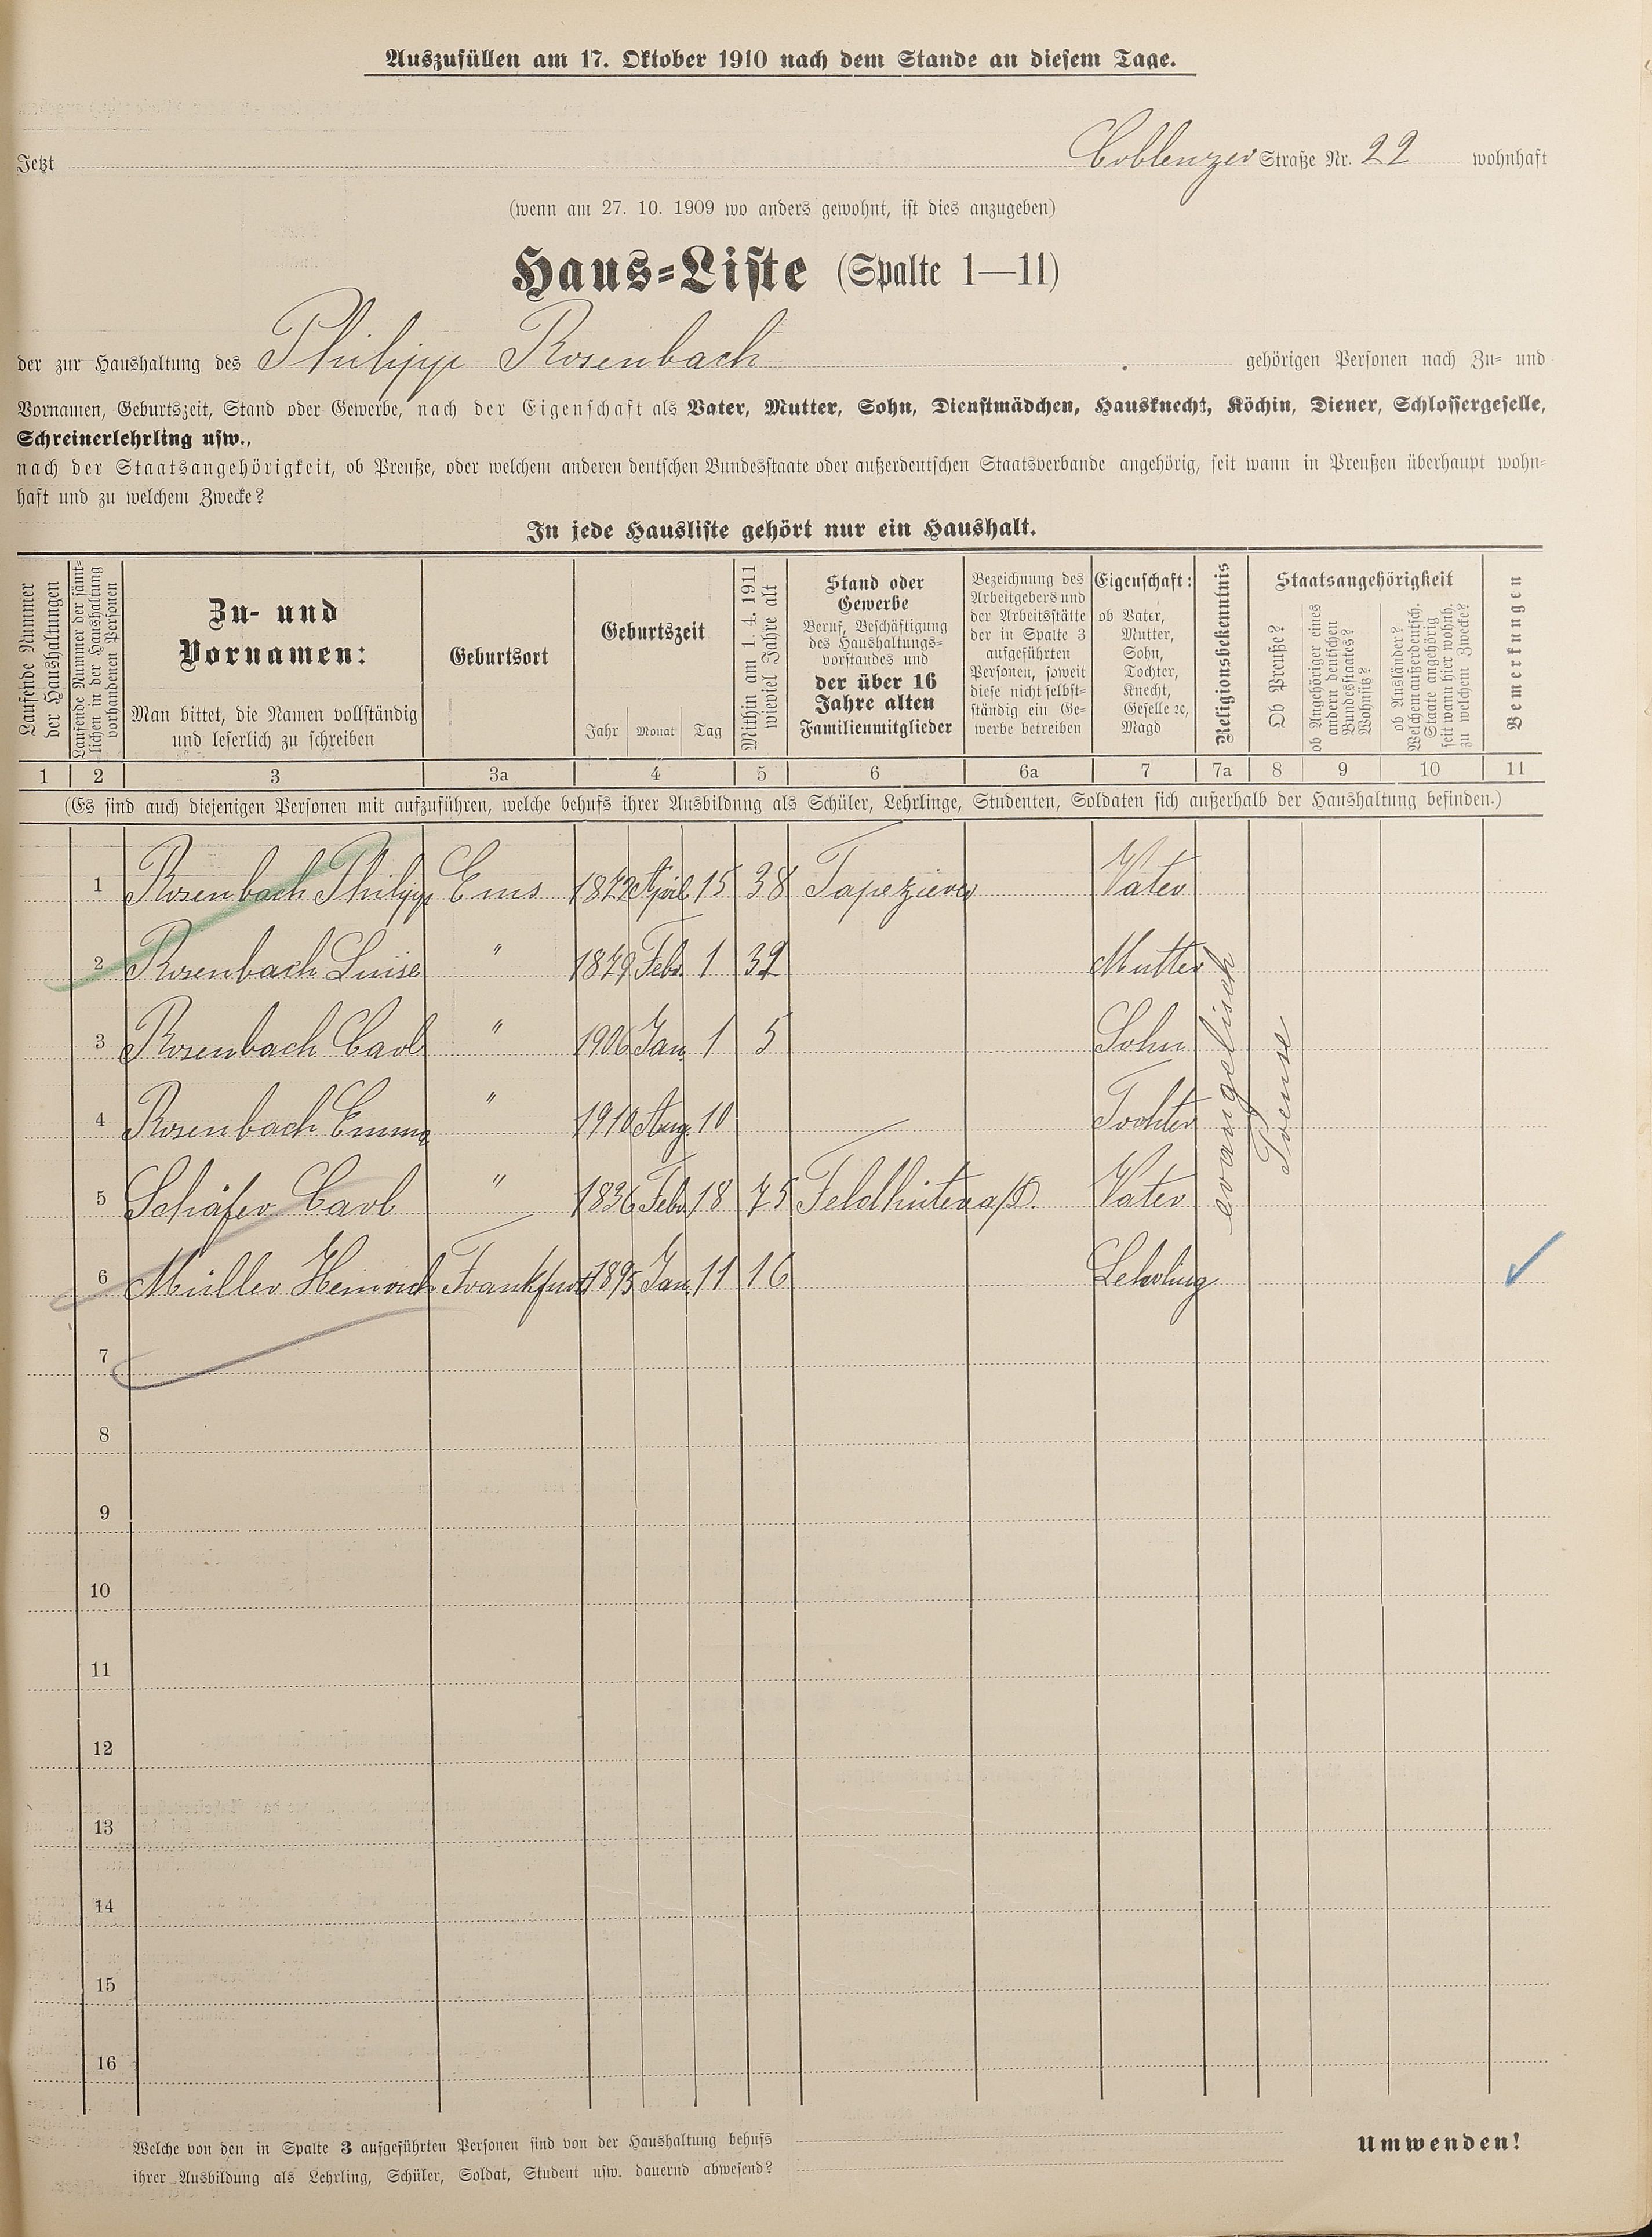 Auszufüllen am 17. Oktober 1910 nach dem Stande an diesem Tage.
Jetzt Coblenzer Straße Nr. 22 wohnhaft
(wenn am 27. 10. 1909 wo anders gewohnt, ist dies anzugeben)
Haus-Liste (Spalte 1—11)
der zur Haushaltung des Philipp Rosenbach gehörigen Personen nach Zu- und
Vornamen, Geburtszeit, Stand oder Gewerbe, nach der Eigenschaft als Vater, Mutter, Sohn, Dienstmädchen, Hausknecht, Köchin, Diener, Schlossergeselle,
Schreinerlehrling usw.,
nach der Staatsangehörigkeit, ob Preuße, oder welchem anderen deutschen Bundesstaate oder außerdeutschen Staatsverbande angehörig, seit wann in Preußen überhaupt wohn-
haft und zu welchem Zwecke?
In jede Hausliste gehört nur ein Haushalt.
Laufende Nummer
der Haushaltungen
Laufende Nummer der sämt-
lichen in der Haushaltung
vorhandenen Personen
Zu- und
Vornamen:
Man bittet, die Namen vollständig
und leserlich zu schreiben
Geburtsort
Geburtszeit
Jahr Monat Tag
Mithin am 1. 4. 1911
wieviel Jahre alt
Stand oder
Gewerbe
Beruf, Beschäftigung
des Haushaltungs-
vorstandes und
der über 16
Jahre alten
Familienmitglieder
Bezeichnung des
Arbeitgebers und
der Arbeitsstätte
der in Spalte 3
aufgeführten
Personen, soweit
diese nicht selbst-
ständig ein Ge-
werbe betreiben
Eigenschaft:
ob Vater,
Mutter,
Sohn,
Tochter,
Knecht,
Geselle ec,
Magd
Religionsbekenntnis
Staatsangehörigkeit
Ob Preuße?
ob Angehöriger eines
andern deutschen
Bundesstaates?
Wohnsitz?
ob Ausländer?
Welchem außerdeutsch.
Staate angehörig
seit wann hier wohnh.
zu welchem Zwecke?
Bemerkungen
1 2 3 3a 4 5 6 6a 7 7a 8 9 10 11
(Es sind auch diejenigen Personen mit aufzuführen, welche behufs ihrer Ausbildung als Schüler, Lehrlinge, Studenten, Soldaten sich außerhalb der Haushaltung befinden.)
1 Rosenbach Philipp Ems 1872 April 15 38 Tapezierer Vater
2 Rosenbach Luise " 1879 Febr. 1 32 Mutter
3 Rosenbach Carl " 1906 Jan. 1 5 Sohn
4 Rosenbach Emma " 1910 Aug. 10 — Tochter
5 Schäfer Carl " 1836 Febr. 18 75 Feldhüter a/D. Vater
6 Müller Heinrich Frankfurt 1895 Jan. 11 16 Lehrling ✓
evangelisch
Preuse
7
8
9
10
11
12
13
14
15
16
Welche von den in Spalte 3 aufgeführten Personen sind von der Haushaltung behufs
ihrer Ausbildung als Lehrling, Schüler, Soldat, Student usw. dauernd abwesend?
Umwenden!